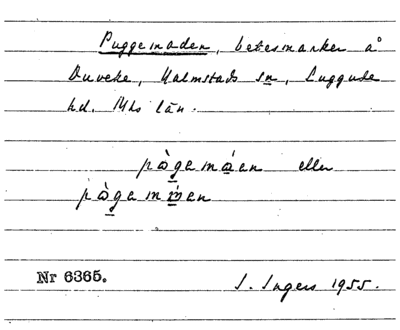 Puggemaden, betesmarker å
Duveke, Halmstads sn, Luggude
hd. Mhs län.
pàgamáen eller
pàgamáen
Nr 6365.
I. Ingers 1955.